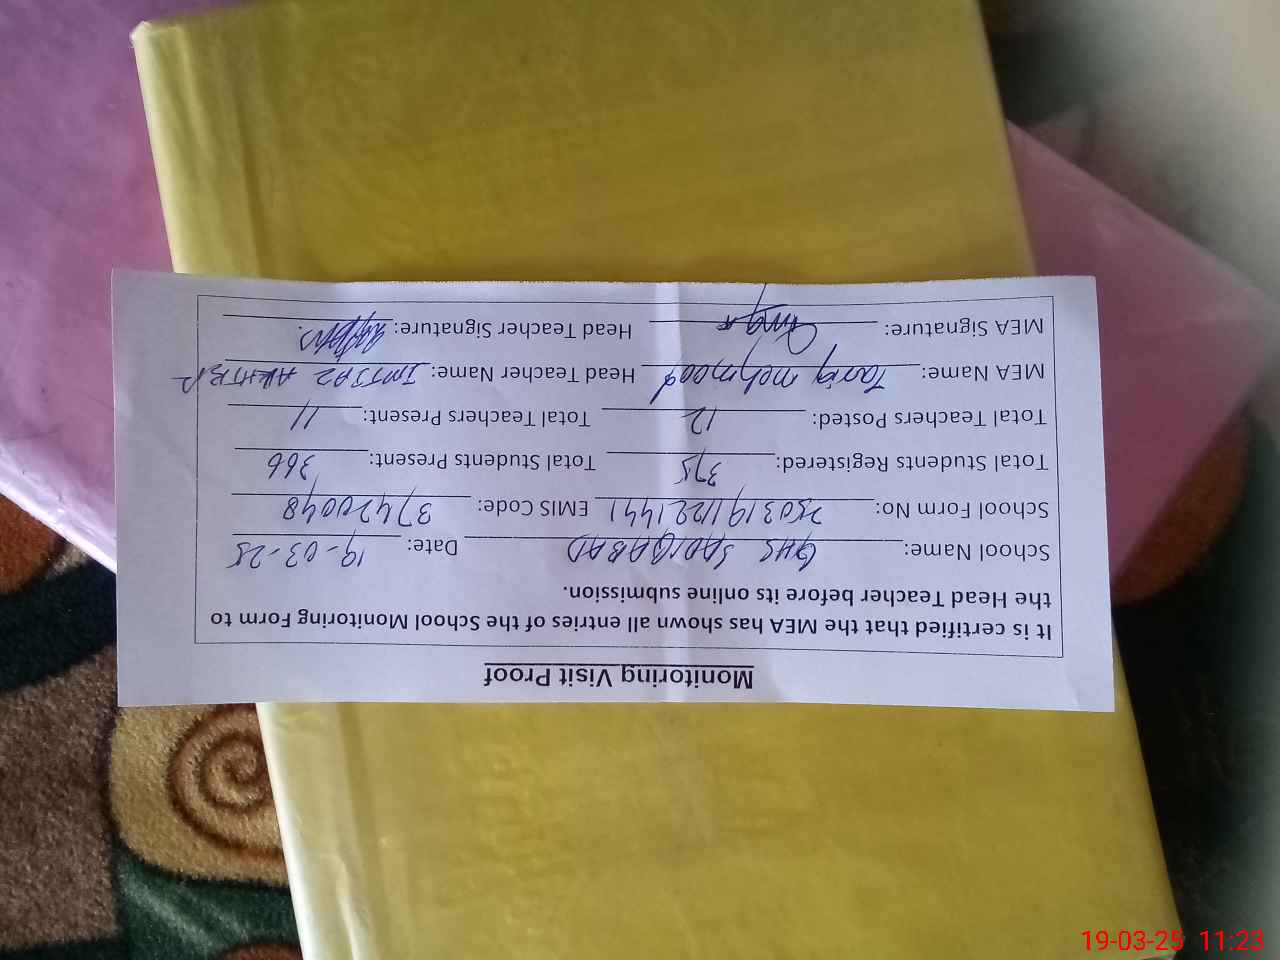 Monitoring Visit Proof
It is certified that the MEA has shown all entries of the School Monitoring Form to
the Head Teacher before its online submission.
School Name: GHS SADIQABAD Date: 19-03-25
School Form No: 25031911221441 EMIS Code: 37420048
Total Students Registered: 375 Total Students Present: 366
Total Teachers Posted: 12 Total Teachers Present: 11
MEA Name: Tariq mehmood Head Teacher Name: IMTIAZ AKHTER
MEA Signature: Head Teacher Signature:
19-03-25 11:23